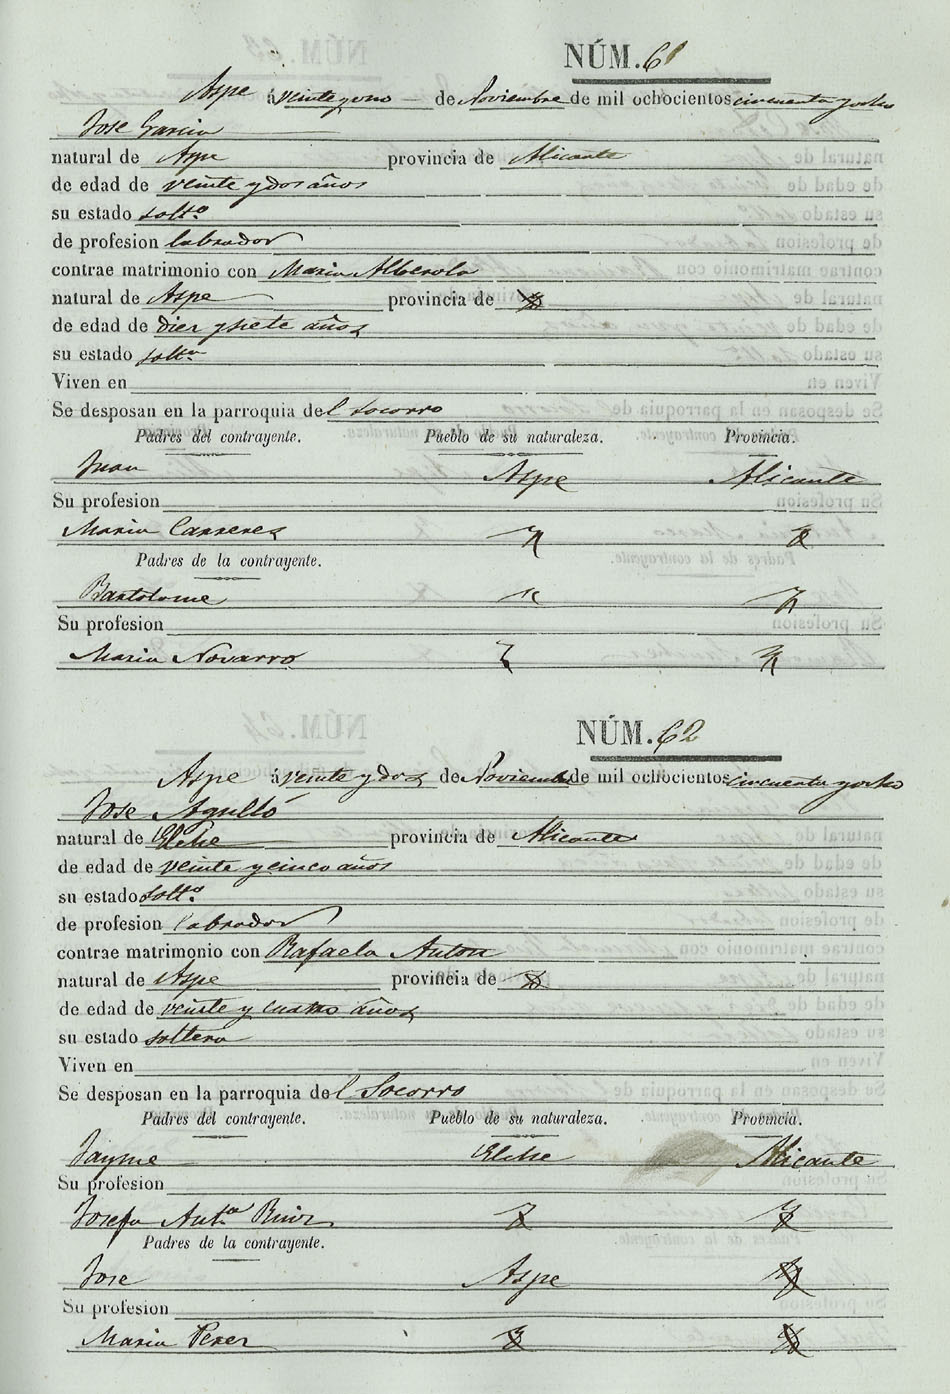 NÚM. 61
Aspe á veinte y uno de Noviembre de mil ochocientos cincuenta y ocho
Jose Garcia
natural de Aspe provincia de Alicante
de edad de veinte y dos años
su estado solt.º
de profesion labrador
contrae matrimonio con Maria Alberola
natural de Aspe provincia de
de edad de diez y siete años
su estado solt.ª
Viven en
Se desposan en la parroquia del Socorro
Padres del contrayente. Pueblo de su naturaleza. Provincia.
Juan Aspe Alicante
Su profesion
Maria Carreres
Padres de la contrayente.
Bartolome
Su profesion
Maria Navarro
NÚM. 62
Aspe á veinte y dos de Noviembre de mil ochocientos cincuenta y ocho
Jose Agulló
natural de Elche provincia de Alicante
de edad de veinte y cinco años
su estado solt.º
de profesion labrador
contrae matrimonio con Rafaela Anton
natural de Aspe provincia de
de edad de veinte y cuatro años
su estado soltera
Viven en
Se desposan en la parroquia del Socorro
Padres del contrayente. Pueblo de su naturaleza. Provincia.
Jayme Elche Alicante
Su profesion
Josefa Ant.ª Ruiz
Padres de la contrayente.
Jose Aspe
Su profesion
Maria Perez